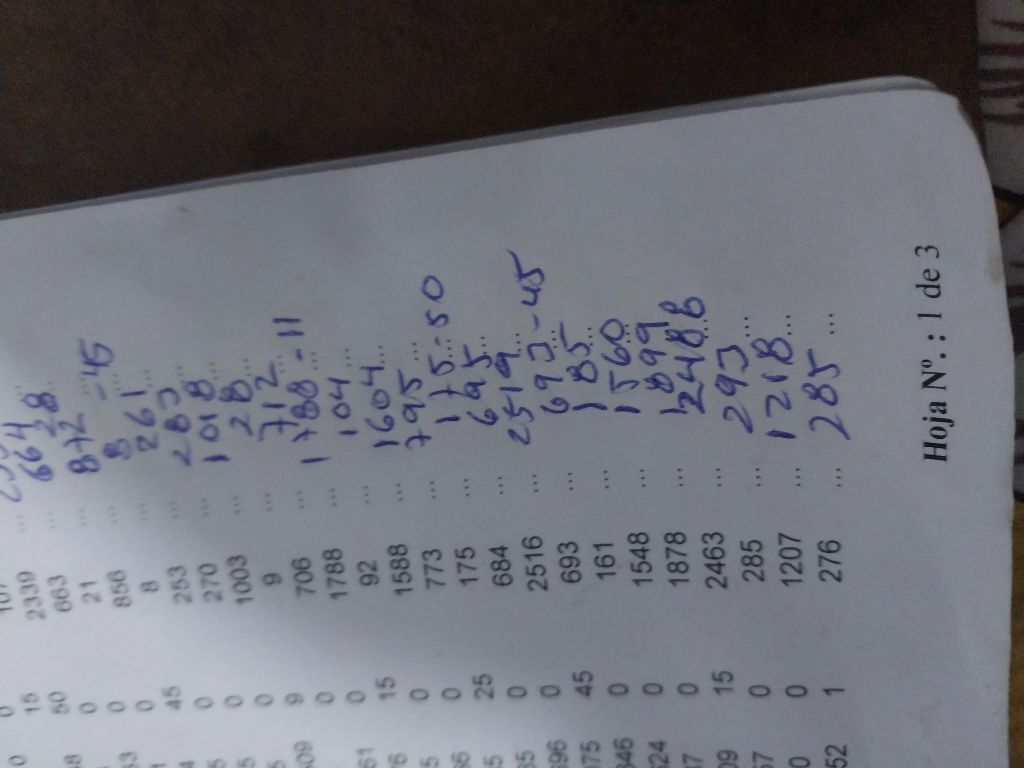 0 15 2339 ...
50 663 ... 664
8 0 21 ... 28
0 856 ... 872 - 45
33 0 8 ... 8
1 45 253 ... 261
4 0 270 ... 283
5 0 1003 ... 1018
5 0 9 ... 28
5 9 706 ... 712
609 0 1788 ... 1788 - 11
0 92 ... 104
61 15 1588 ... 1604
76 0 773 ... 795
5 0 175 ... 175 - 50
86 25 684 ... 695
5 0 2516 ... 2519
85 0 693 ... 693 - 45
696 45 161 ... 185
075 0 1548 ... 1560
346 0 1878 ... 1899
824 0 2463 ... 2488
09 15 285 ... 293
67 0 1207 ... 1218
0 0 276 ... 285
52 1
Hoja Nº. : 1 de 3